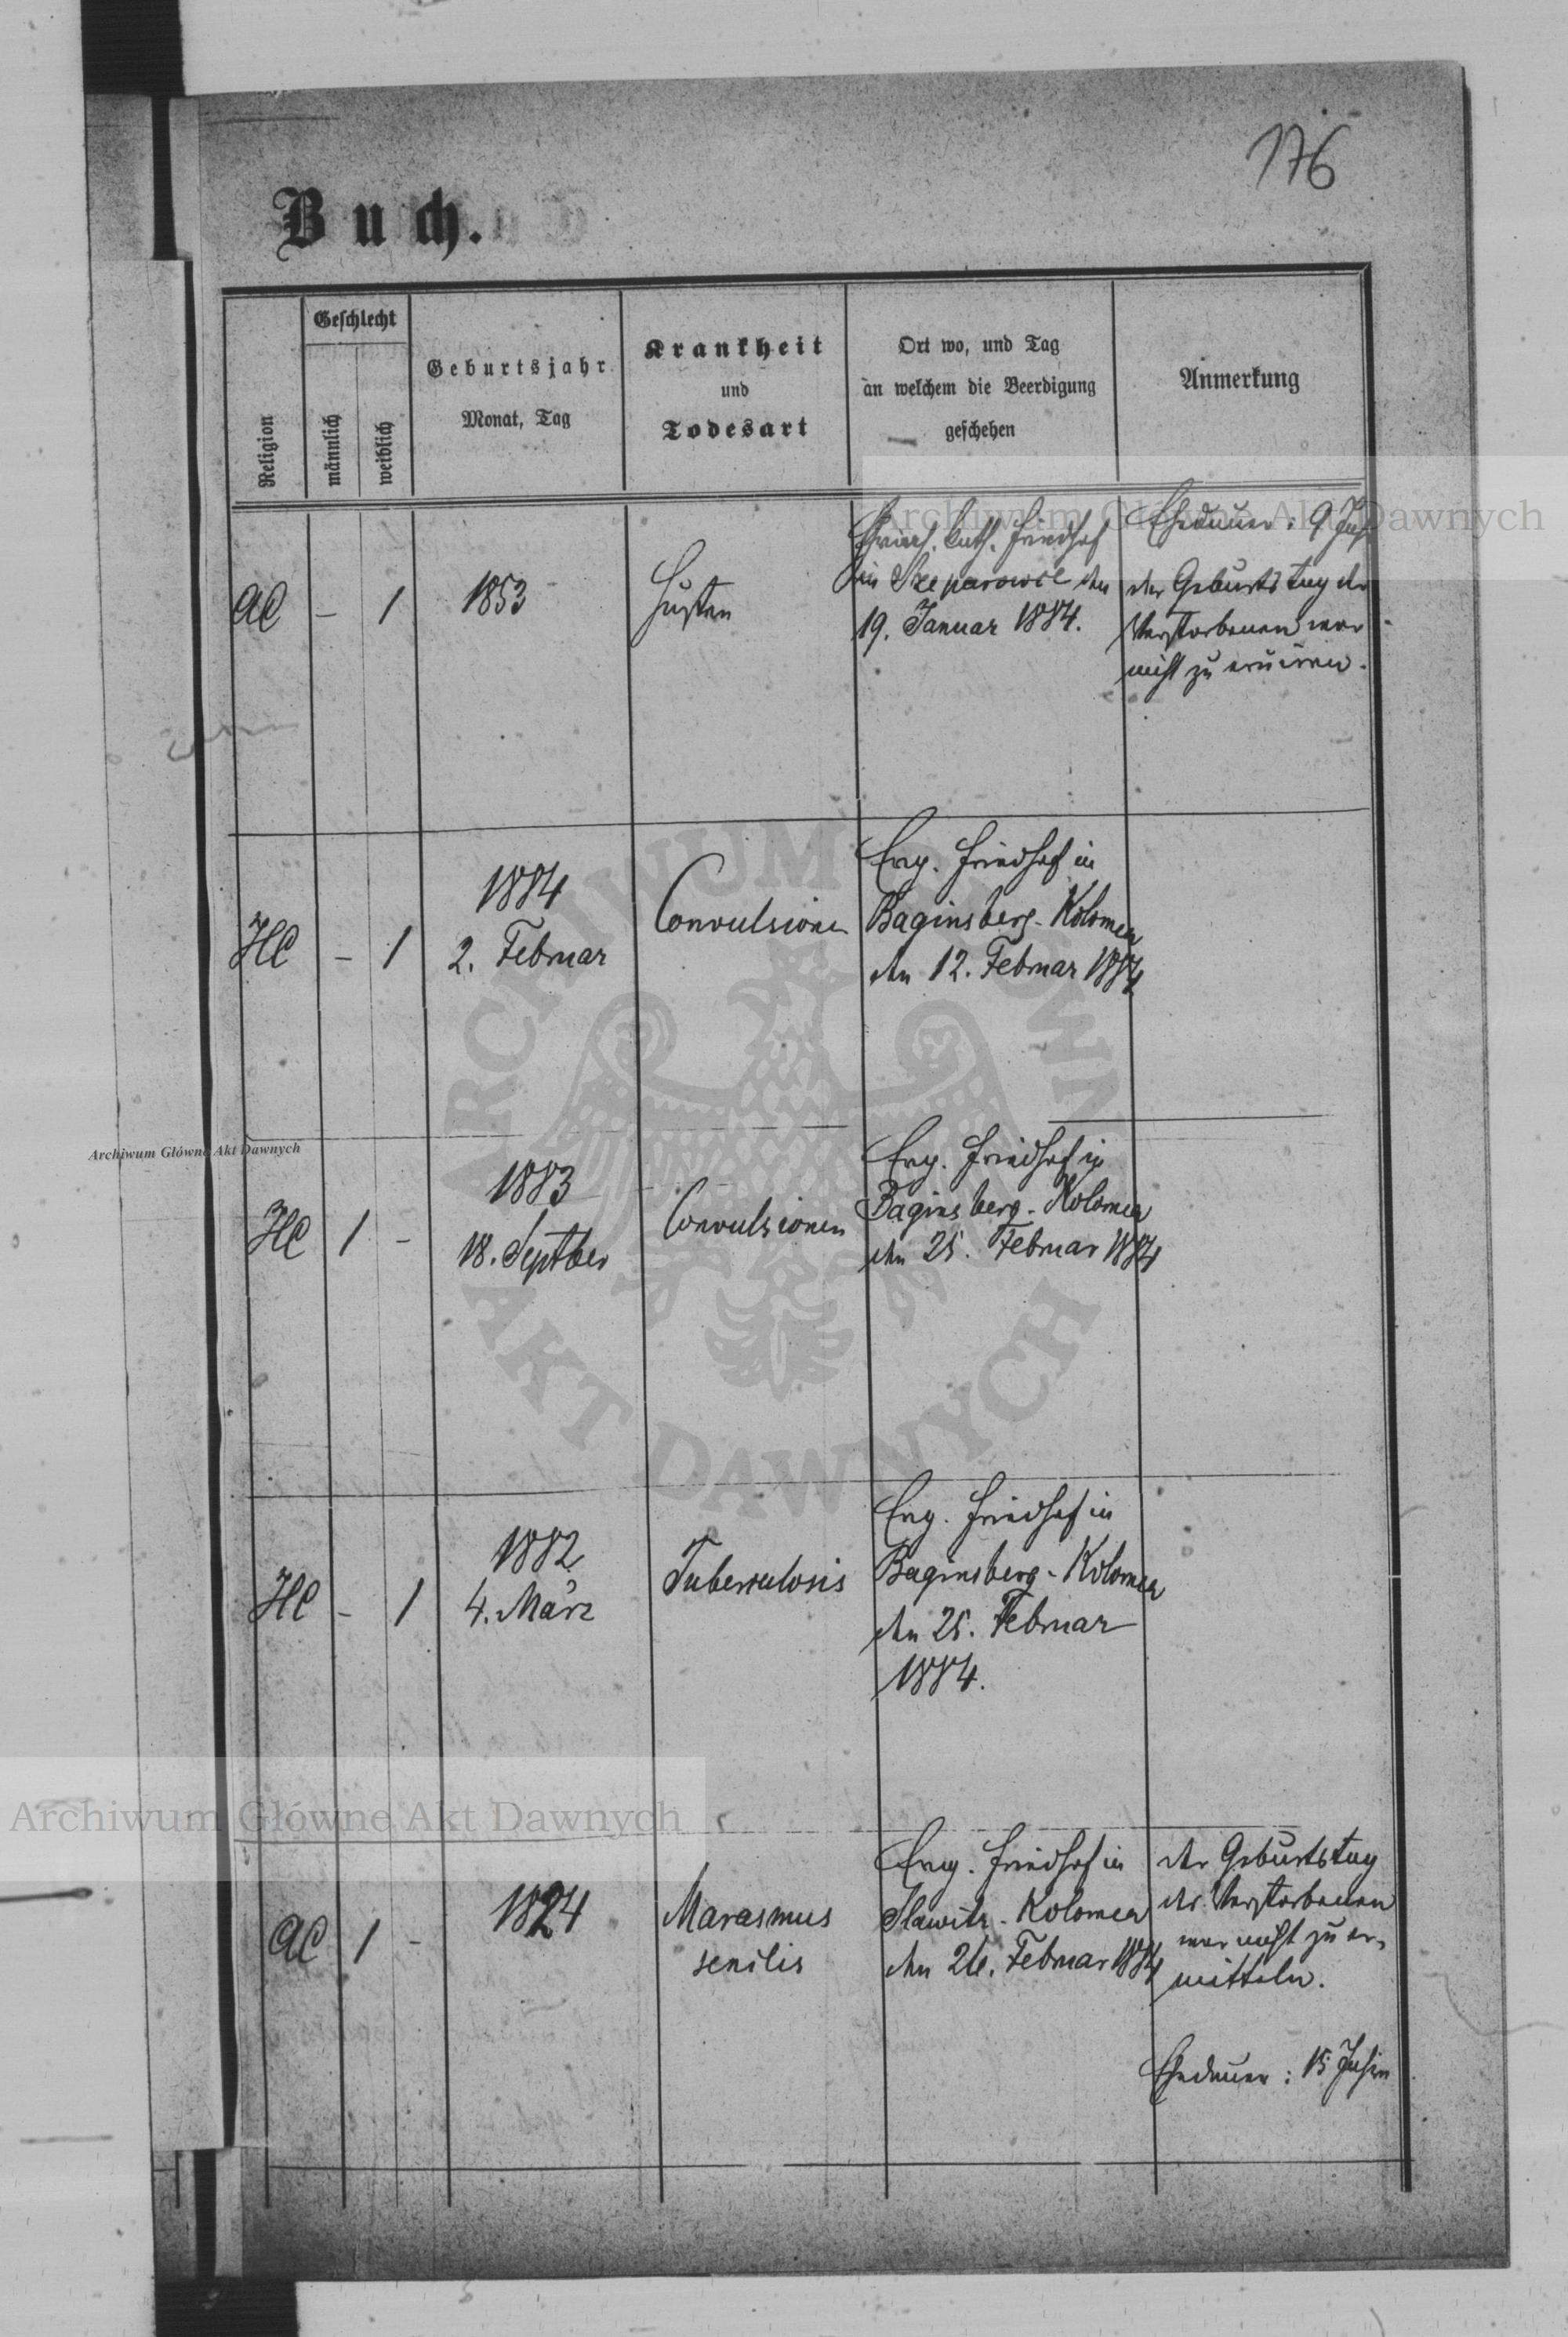 176
Buch.
Religion
Geschlecht
männlich
weiblich
Geburtsjahr
Monat, Tag
Krankheit
und
Todesart
Ort wo, und Tag
an welchem die Beerdigung
geschehen
Anmerkung
AC – 1
1853
Husten
Griech. kath. Friedhof
in Szeparowce den
19. Januar 1884.
Ehedauer: 9 Jah
der Geburtstag der
Verstorbenen war
nicht zu eruiren.
HC – 1
1884
2. Februar
Convulsionen
Evg. Friedhof in
Baginsberg-Kolomea
den 12. Februar 1884
HC 1 –
1883
18. Septber
Convulsionen
Evg. Friedhof in
Baginsberg-Kolomea
den 25. Februar 1884
HC – 1
1882
4. März
Tuberculosis
Evg. Friedhof in
Baginsberg-Kolomea
den 25. Februar
1884.
AC 1 –
1824
Marasmus
senilis
Evg. Friedhof in
Slawitz-Kolomea
den 26. Februar 1884
der Geburtstag
des Verstorbenen
war nicht zu er-
mitteln.
Ehedauer: 15 Jahre
Archiwum Główne Akt Dawnych
Archiwum Główne Akt Dawnych
Archiwum Główne Akt Dawnych
ARCHIWUM
AKT DAWNYCH